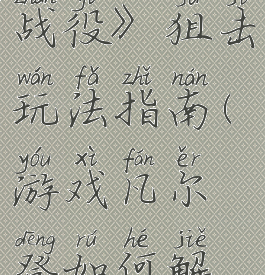 zhàn yì jū jī
战役》狙击
wán fǎ zhǐ nán
玩法指南(
yóu xì fán ěr
游戏凡尔
dēng rú hé jiě
登如何解